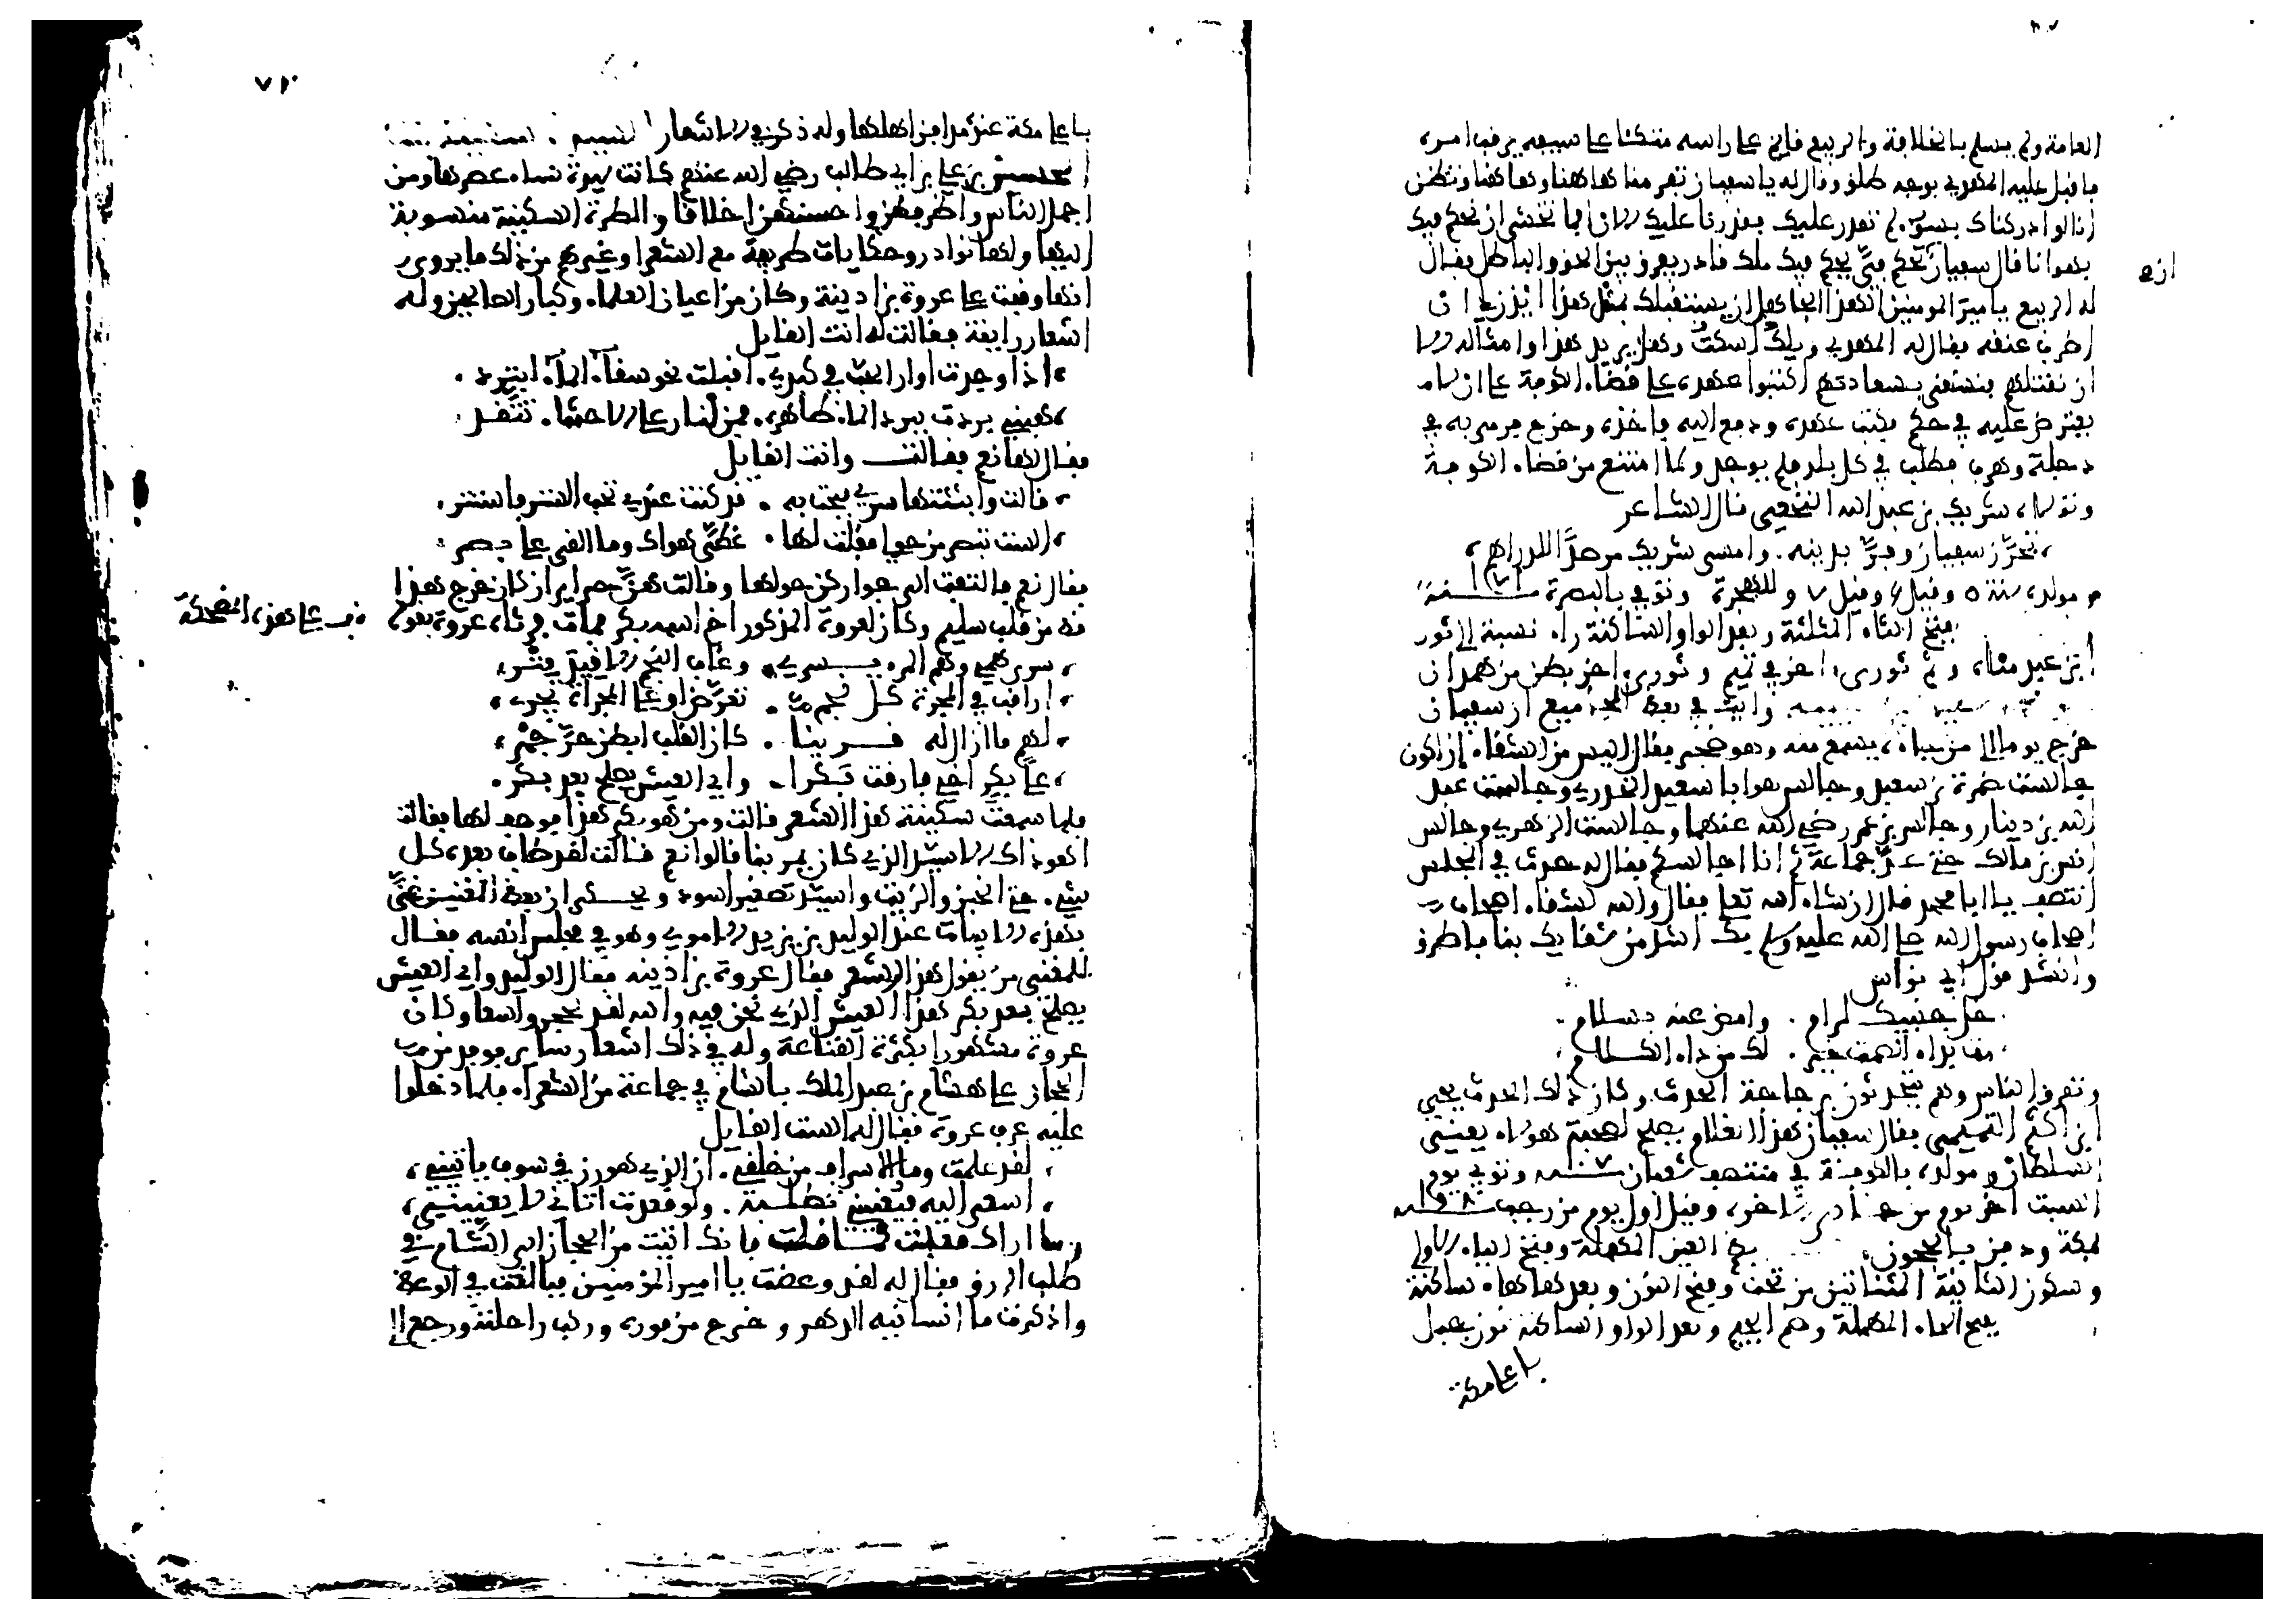 العامة ولم يسلم بالخلافة والربيع قايم على راسه متكئا على سيفه يرقب امره
فاقبل عليه المهدي بوجه طلق وقال له يا سفيان تفر منا هاهنا وهاهنا وتظن
انا لو اردناك بسوء لم نقدر عليك فقد قدرنا عليك الان اما تخشى ان نحكم فيك
بهوانا قال سفيان ان تحكم في يحكم فيك ملك قادر يفرق بين الحق والباطل فقال
له الربيع يا امير المومنين الهذا الجاهل ان يستقبلك بمثل هذا ايذن لي ان
اضرب عنقه فقال له المهدي ويلك اسكت وهل يريد هذا وامثاله الا
ان نقتلهم فنشقى بسعادتهم اكتبوا عهده على قضاء الكوفة على ان لا
يعترض عليه في حكم فكتب عهده ودفع اليه فاخذه وخرج فرمى به في
دجلة وهرب فطلب في كل بلد فلم يوجد ولما امتنع من قضاء الكوفة
وتولاه شريك بن عبد الله النخعي قال الشاعر
تحرز سفيان وفر بدينه . وامسى شريك مرصدا للدراهم
ومولده سنة ٥ وقيل ٦ وقيل ٧ و للهجرة وتوفي بالبصرة سنة ١٦١
بفتح الثاء المثلثة وبعد الواو الساكنة راء نسبة الى ثور
ابن عبد مناه وثم ثوري اخر في تميم وثوري اخر بطن من همدان
ورايت في بعض المجاميع ان سفيان
خرج يوما الى من جاءه يسمع منه وهو ضجر فقال اليس من الشقاء ان اكون
جالست ضمرة بن سعيد وجالس هو ابا سعيد الخدري وجالست عبد
الله بن دينار وجالس بن عمر رضي الله عنهما وجالست الزهري وجالس
انس بن مالك حتى عد جماعة ثم انا اجالسكم فقال له حدث في المجلس
انتصف يا ابا محمد قال ان شاء الله تعلى فقال والله لشقاء اصحاب
اصحاب رسول الله صلى الله عليه وسلم بك اشد من شقايك بنا فاطرق
وانشد قول ابي نواس
خل جنبيك لرام . وامض عنه بسلام
مت بداء الصمت خير . لك من داء الكلام
وتفرق الناس وهم يتحدثون برجاحة الحدث وكان ذلك الحدث يحيى
ابن اكثم التميمي فقال سفيان هذا الغلام يصلح لصحبة هولاء يعني
السلطان ومولده بالكوفة في منتصف شعبان سنة وتوفي يوم
السبت اخر يوم من جمادى الاخره وقيل اول يوم من رجب سنة ١٩٨
بمكة ودفن بالحجون بضم العين المهملة وفتح الياء الاولى
وسكون الثانية المثناتين من تحت وفتح النون وبعدها هاء ساكنة
بفتح الحاء المهملة وضم الجيم وبعد الواو الساكنة نون جبل
باعلى مكة
انه
٧٢
باعلى مكة عنده مدافن اهلها وله ذكر في الاشعار
الحسين بن علي بن ابي طالب رضي الله عنهم كانت سيدة نساء عصرها ومن
اجمل الناس واظرفهن واحسنهن اخلاقا والطرة السكينية منسوبة
اليها ولها نوادر وحكايات ظريفة مع الشعرا وغيرهم من ذلك ما يروى
انها وقفت على عروة بن اذينة وكان من اعيان العلماء وكبار الصالحين وله
اشعار رايقة فقالت له انت القايل
اذا وجدت اوار الحب في كبدي . اقبلت نحو سقاء الماء ابترد .
هبني بردت ببرد الماء ظاهره . فمن لنار على الاحشاء تتقد
فقال لها نعم فقالت وانت القايل
قالت وابثثتها سري فبحت به . قد كنت عندي تحب الستر فاستتر
الست تبصر من حولي فقلت لها . غطى هواك وما القى على بصري
فقال نعم فالتفتت الى جوار كن حولها وقالت هن حراير ان كان خرج هذا
من قلب سليم وكان لعروة المذكور اخ اسمه بكر فمات فرثاه عروة بقوله
قف على هذه المضحكة
سرى همي وهم المرء يسري . وغاب النجم الا قيد فتر
اراقب في المجرة كل نجم . تعرض او على المجراة يجري
لهم ما ازال له قرينا . كان القلب ابطن حر جمر
على بكر اخي فارقت بكرا . واي العيش يصلح بعد بكر .
فلما سمعت سكينة هذا الشعر قالت ومن هو بكر هذا فوصف لها فقالت
اهو ذاك الاسيد الذي كان يمر بنا قالوا نعم قالت لقد طاب بعده كل
شيء حتى الخبز والزيت واسيد تصغير اسود ويحكى ان بعض المغنين غنى
بهذه الابيات عند الوليد بن يزيد الاموي وهو في مجلس انسه فقال
للمغني من يقول هذا الشعر فقال عروة بن اذينه فقال الوليد واي العيش
يصلح بعد بكر هذا العيش الذي نحن فيه والله لقد تحجر واسعا وكان
عروة مشهورا بكثرة القناعة وله في ذلك اشعار سايره فوفد من
الحجاز على هشام بن عبد الملك بالشام في جماعة من الشعراء فلما دخلوا
عليه عرف عروة فقال له الست القايل
لقد علمت وما الاسراف من خلقي . ان الذي هو رزقي سوف ياتيني
اسعى اليه فيعنيني تطلبه . ولو قعدت اتاني لا يعنيني
وما اراك فعلت كما قلت فانك اتيت من الحجاز الى الشام في
طلب الرزق فقال له لقد وعظت يا امير المؤمنين فبالغت في الوعظ
واذكرت ما انسانيه الدهر وخرج من فوره وركب راحلته ورجع الى